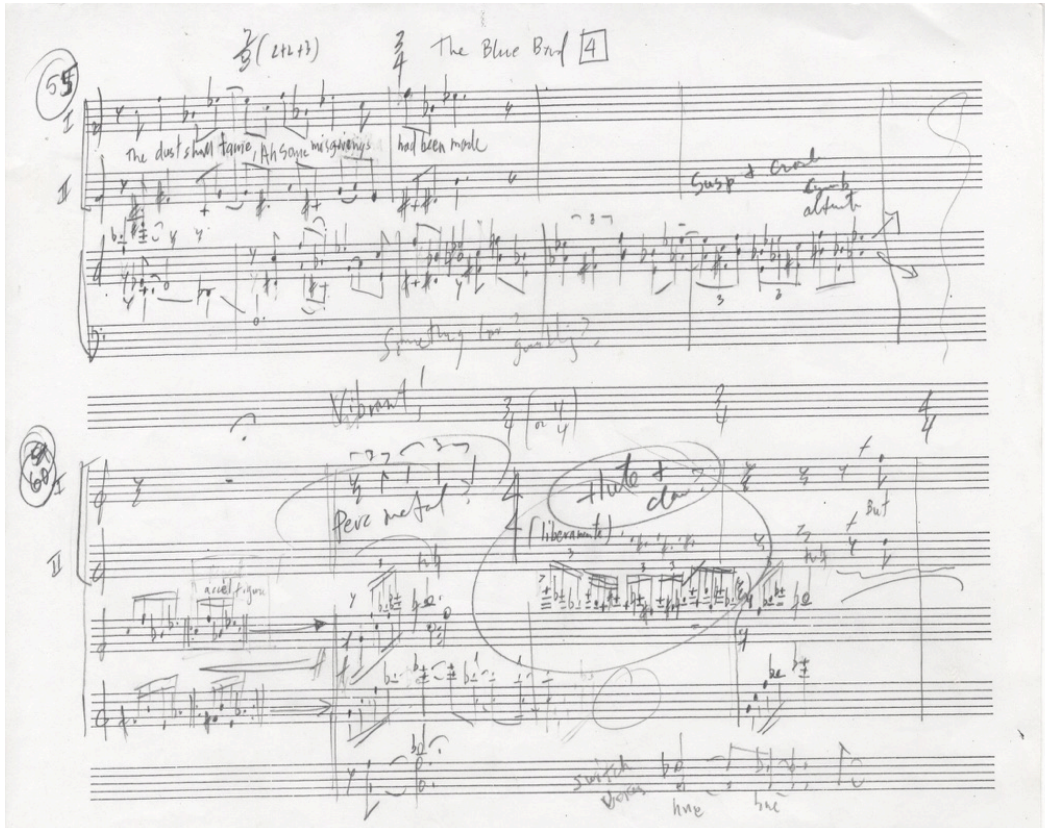 7/8 (2+2+3) 3/4 The Blue Bird 4
55
I
The dust shall fame, Ah some misgivings had been made
II
Susp +
Something for
Vibrant! 3/4 (or 4/4) 3/4 4/4
60
I
Perc metal? 4/4 flute + clar?
(liberamente)
But
II
accel figure
switch
hue hue